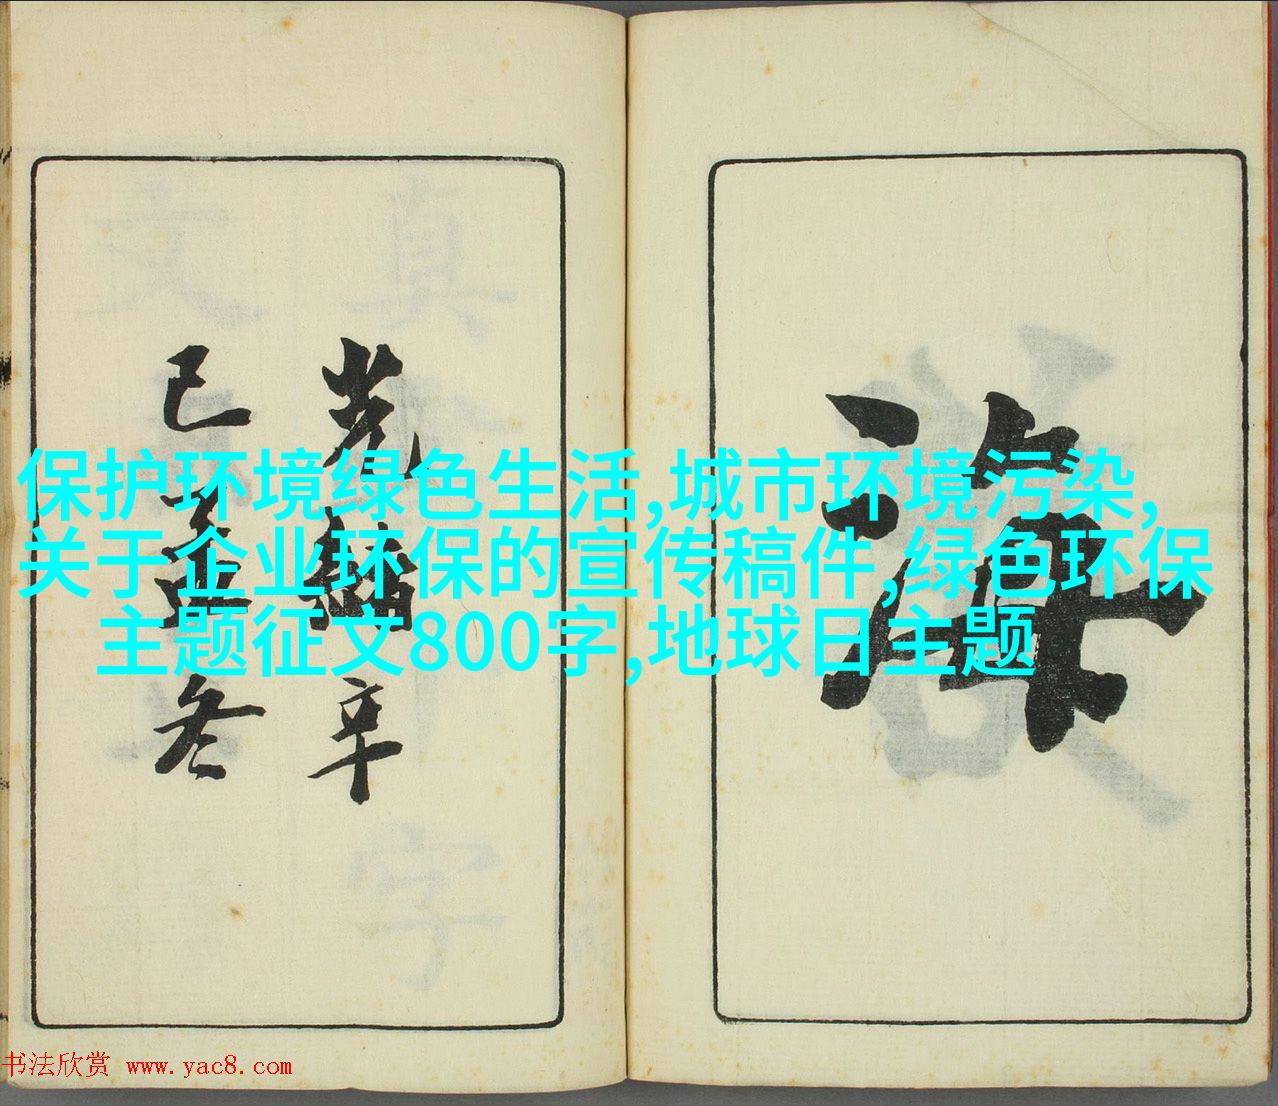 保护环境绿色生活,城市环境污染,
关于企业环保的宣传稿件,绿色环保
主题征文800字,地球日主题
海
光緒辛
巳孟冬
书法欣赏 www.yac8.com